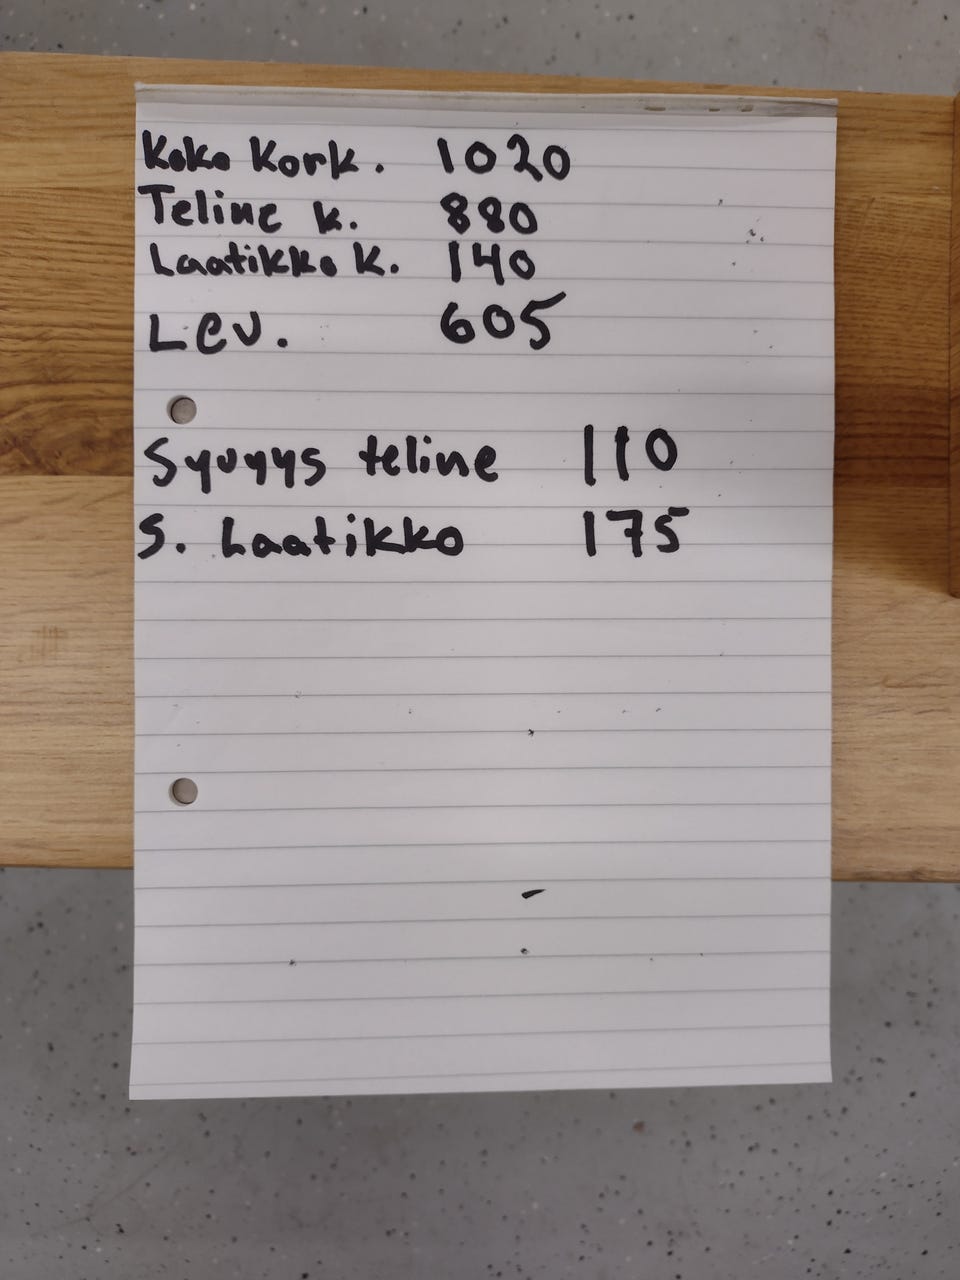 Koko Kork. 1020
Teline k. 880
Laatikko k. 140
Lev. 605
Syvyys teline 110
S. Laatikko 175